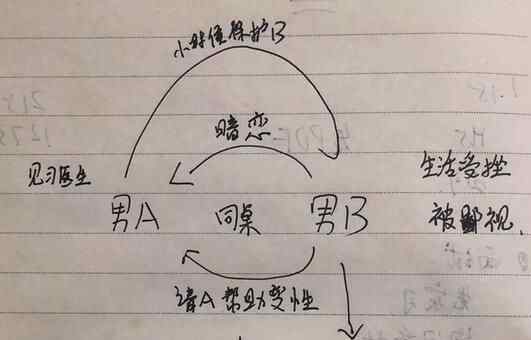 小时候保护B
暗恋
见习医生
生活受挫
男A
同桌
男B
被鄙视.
请A帮助变性